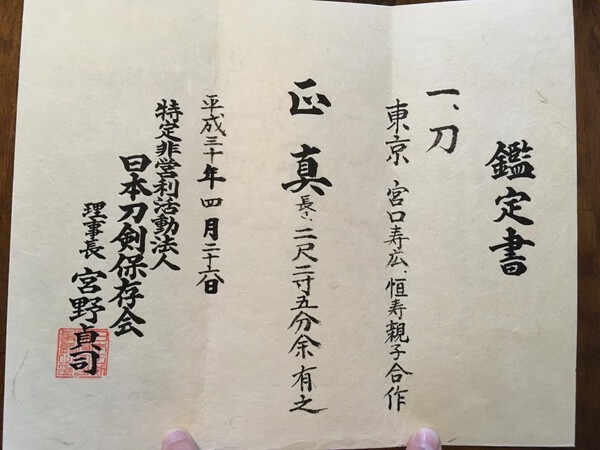 鑑定書
一、刀
東京 宮口寿広、恒寿親子合作
正真 長さ、二尺二寸五分余有之
平成三十年四月二十六日
特定非営利活動法人
日本刀剣保存会
理事長 宮野貞司